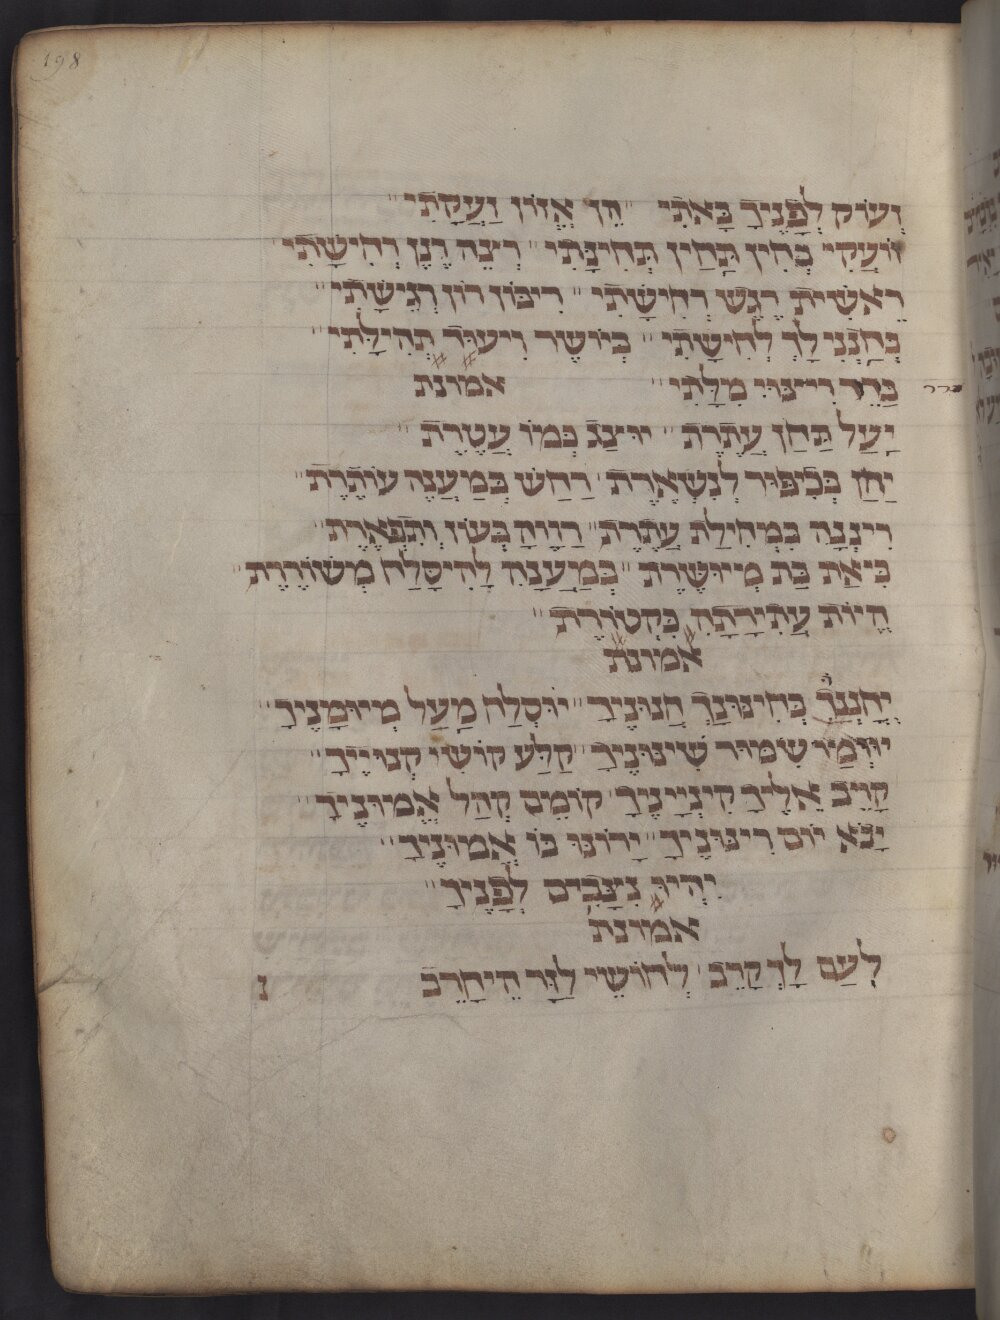 198
וְעוֹק לְפָנֶיךָ בָּאתִי הֵן אֱזוֹן וַעֲקָתִי
זוֹעֲקִי בְּחִין תָּחַין תְּחִינָתִי רְצֵה רֶנֶן רְחִישָׁתִי
רֵאשִׁית רֶגֶשׁ רְחִישָׁתִי רִיבּוֹן רוֹן רְגִישָׁתִי
בְּחָנְנִי לָךְ לְחִישָׁתִי בְּיוֹשֶׁר וִיעוּד תְהִילָּתִי
מִלָּתִי אמונת
יָעַל תַּחַן עֲתֶרֶת יוּצַג כְּמוֹ עֲטֶרֶת
יַחַן בְּכִפּוּר לְנִשְׁאֶרֶת רַחַשׁ בְּמַעֲנֶה עוֹתֶרֶת
רִינְנָה בִּמְחִילַת עֲתֶרֶת רַוְוּיָה בְּעוֹז וְתִפְאֶרֶת
בִּיאַת בַּת מְיוּשֶׁרֶת בְּמַעֲנָהּ לְהִיסָּלַח מְשׁוֹרֶרֶת
הֱיוֹת עֲתִירָתָהּ כִּקְטוֹרֶת
אמונת
יְחָנְנְךָ בְּחִינּוּנָךְ חֲנוּנֶיךָ יוּסְלַח מַעַל מְיוּמָנֶיךָ
שִׁימּוּר שִׁינּוּנֶיךָ קַלַּע קוֹשִׁי קְנוּיֶיךָ
קָרֵיב אֵלֶיךָ קִינְיָינֶיךָ קוֹמֵם קְהַל אֱמוּנֶיךָ
יָבֹא יוֹם רִינּוּנֶיךָ יָרוֹנּוּ בוֹ אֱמוּנֶיךָ
יְהִיוּ נִצָּבִים לְפָנֶיךָ
אמונת
לְעַם לָךְ קָרֵב לְחוֹשֵׁי לַדָּר הֵיחָרֵב